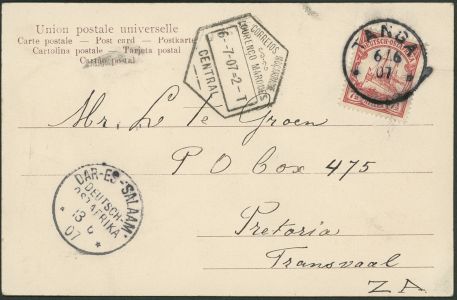 Union postale universelle
Carte postale — Post card — Postkarte
Cartolina postale — Tarjeta postal
Cartão postal
CORREIOS
LOURENCO MARQUES
6-7-07=2-T
CENTRAL
TANGA
6/6
07
DEUTSCH-OSTAFRIKA
7½
Mr. L te Groen
P O Box 475
Pretoria
Transvaal
Z A
DAR-ES-SALAAM
DEUTSCH-
OSTAFRIKA
13 6
07